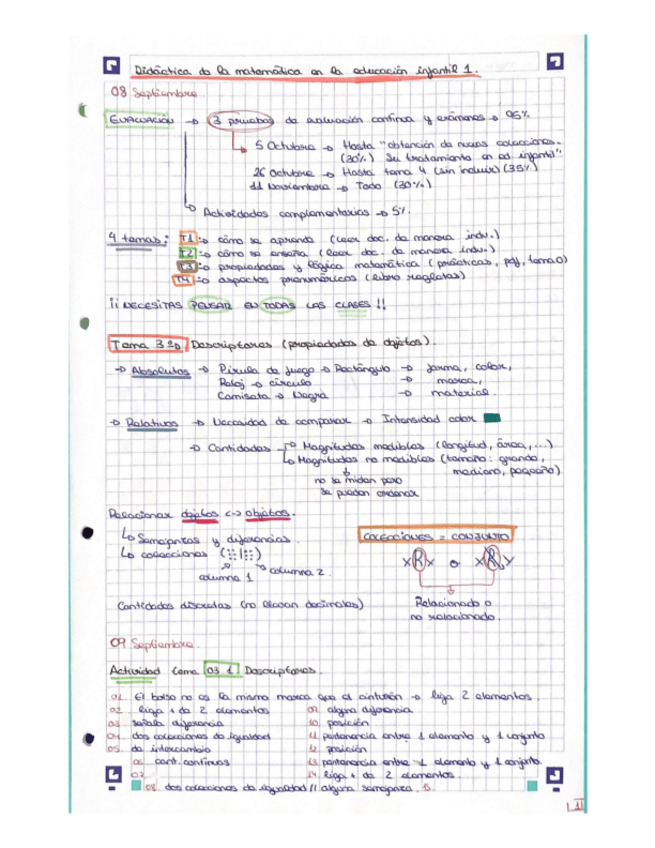 Didáctica de la matemática en la educación infantil 1.
08 Septiembre
EVALUACIÓN → 3 pruebas de evaluación continua y exámenes → 95%
5 Octubre → Hasta "obtención de nuevas colecciones.
(30%) Su tratamiento en ed infantil"
26 Octubre → Hasta tema 4 (sin incluir) (35%)
11 Noviembre → Todo (30%)
Actividades complementarias → 5%.
4 temas: T1 → cómo se aprende (leer doc. de manera indv.)
T2 → cómo se enseña (leer doc. de manera indv.)
T3 → propiedades y lógica matemática (prácticas, pdf, tema 0)
T4 → aspectos prenuméricos (libro regletas)
¡¡ NECESITAS PENSAR EN TODAS LAS CLASES !!
Tema 3 Descriptores (propiedades de objetos).
→ Absolutos → Pieza de juego → Rectángulo → forma, color,
Reloj → círculo → marca,
Camiseta → Negra → material.
→ Relativos → Necesidad de comparar → Intensidad color
→ Cantidades → Magnitudes medibles (longitud, área, ...)
→ Magnitudes no medibles (tamaño: grande,
mediano, pequeño)
no se miden pero
se pueden ordenar
Relacionar objetos <-> objetos.
→ Semejanzas y diferencias.
→ colecciones
columna 1 columna 2.
COLECCIONES = CONJUNTO
x R x o x R y
Cantidades discretas (no llevan decimales)
Relacionado o
no relacionado.
09 Septiembre.
Actividad tema 03 1 Descriptores.
01. El bolso no es la misma marca que el cinturón → liga 2 elementos.
02 liga + de 2 elementos
03 señala diferencia
04. dos colecciones de igualdad
05. de intercambio
06 cant. continuas
07.
08. dos colecciones de igualdad // alguna semejanza.
09. alguna diferencia
10 posición
11 pertenencia entre 1 elemento y 1 conjunto
12 posición
13 pertenencia entre 1 elemento y 1 conjunto.
14 liga + de 2 elementos.
1